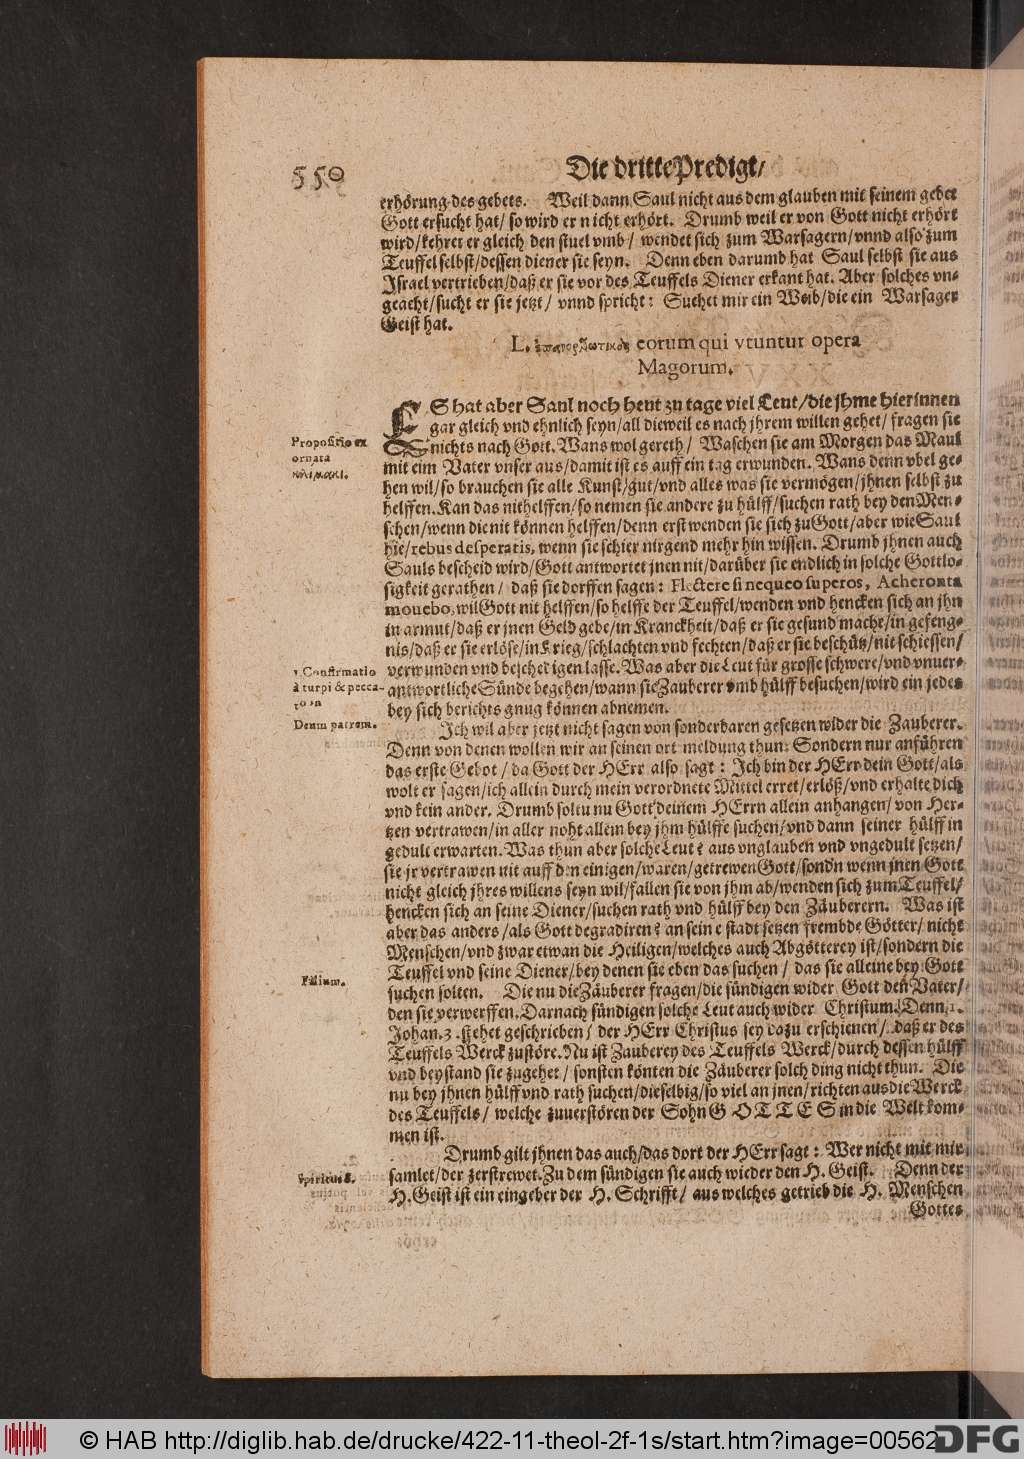 550
Die dritte Predigt/
erhörung des gebets. Weil dann Saul nicht aus dem glauben mit seinem gebet
Gott ersucht hat/ so wird er nicht erhört. Drumb weil er von Gott nicht erhört
wird/kehret er gleich den stuel vmb/ wendet sich zum Warsagern/vnnd also zum
Teuffel selbst/dessen diener sie seyn. Denn eben darumb hat Saul selbst sie aus
Jsrael vertrieben/daß er sie vor des Teuffels Diener erkant hat. Aber solches vn-
geacht/sucht er sie jetzt/ vnnd spricht: Suchet mir ein Weib/die ein Warsager
Geist hat.
L. eorum qui vtuntur opera
Magorum.
ES hat aber Saul noch heut zu tage viel Leut/die jhme hierinnen
gar gleich vnd ehnlich seyn/all dieweil es nach jhrem willen gehet/ fragen sie
nichts nach Gott. Wans wol gereth/ Waschen sie am Morgen das Maul
mit eim Vater vnser aus/damit ist es auff ein tag erwunden. Wans denn vbel ge-
hen wil/so brauchen sie alle Kunst/gut/vnd alles was sie vermögen/jhnen selbst zu
helffen. Kan das nit helffen/so nemen sie andere zu hülff/suchen rath bey den Men-
schen/wenn die nit können helffen/denn erst wenden sie sich zu Gott/aber wie Saul
hie/rebus desperatis, wenn sie schier nirgend mehr hin wissen. Drumb jhnen auch
Sauls bescheid wird/Gott antwortet jnen nit/darüber sie endlich in solche Gottlo-
sigkeit gerathen/ daß sie dorffen sagen: Flectere si nequeo superos, Acheronta
mouebo, wil Gott nit helffen/so helffe der Teuffel/wenden vnd hencken sich an jhn
in armut/daß er jnen Geld gebe/in Kranckheit/daß er sie gesund mache/in gefeng-
nis/daß er sie erlöse/in Krieg/schlachten vnd fechten/daß er sie beschütz/nit schiessen/
verwunden vnd beschedigen lasse. Was aber die Leut für grosse schwere/vnd vnuer-
antwortliche Sünde begehen/wann sie Zauberer vmb hülff besuchen/wird ein jedes
bey sich berichts gnug können abnemen.
Jch wil aber jetzt nicht sagen von sonderbaren gesetzen wider die Zauberer.
Denn von denen wollen wir an seinen ort meldung thun: Sondern nur anführen
das erste Gebot/ da Gott der HErr also sagt: Jch bin der HErr dein Gott/als
wolt er sagen/ich allein durch mein verordnete Mittel erret/erlöß/vnd erhalte dich
vnd kein ander. Drumb soltu nu Gott deinem HErrn allein anhangen/ von Her-
tzen vertrawen/in aller noht allein bey jhm hülffe suchen/vnd dann seiner hülff in
gedult erwarten. Was thun aber solche Leut? aus vnglauben vnd vngedult setzen/
sie jr vertrawen nit auff den einigen/waren/getrewen Gott/sondn wenn jnen Gott
nicht gleich jhres willens seyn wil/fallen sie von jhm ab/wenden sich zum Teuffel/
hencken sich an seine Diener/suchen rath vnd hülff bey den Zäuberern. Was ist
aber das anders/als Gott degradiren? an seine stadt setzen frembde Götter/ nicht
Menschen/vnd zwar etwan die Heiligen/welches auch Abgötterey ist/sondern die
Teuffel vnd seine Diener/bey denen sie eben das suchen/ das sie alleine bey Gott
suchen solten. Die nu die Zäuberer fragen/die sündigen wider Gott den Vater/
den sie verwerffen. Darnach sündigen solche Leut auch wider Christum. Denn
Johan.3. stehet geschrieben/ der HErr Christus sey dazu erschienen/ daß er des
Teuffels Werck zustöre. Nu ist Zauberey des Teuffels Werck/durch dessen hülff
vnd beystand sie zugehet/ sonsten könten die Zäuberer solch ding nicht thun. Die
nu bey jhnen hülff vnd rath suchen/dieselbig/so viel an jnen/richten aus die Werck
des Teuffels/ welche zuuerstören der Sohn GOTTES in die Welt kom-
men ist.
Drumb gilt jhnen das auch/das dort der HErr sagt: Wer nicht mit mir
samlet/der zerstrewet. Zu dem sündigen sie auch wieder den H. Geist. Denn der
H. Geist ist ein eingeber der H. Schrifft/ aus welches getrieb die H. Menschen
Gottes
Propositio ex
ornata
1. Confirmatio
à turpi & pecca-
Deum patrem.
Filium.
Spiritum S.
© HAB http://diglib.hab.de/drucke/422-11-theol-2f-1s/start.htm?image=00562
DFG